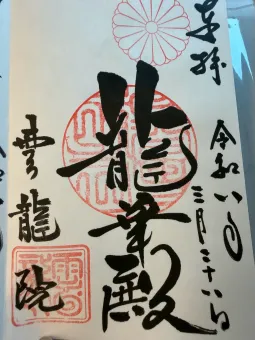 奉拝
令和八年三月二十八日
龍華殿
雲龍院